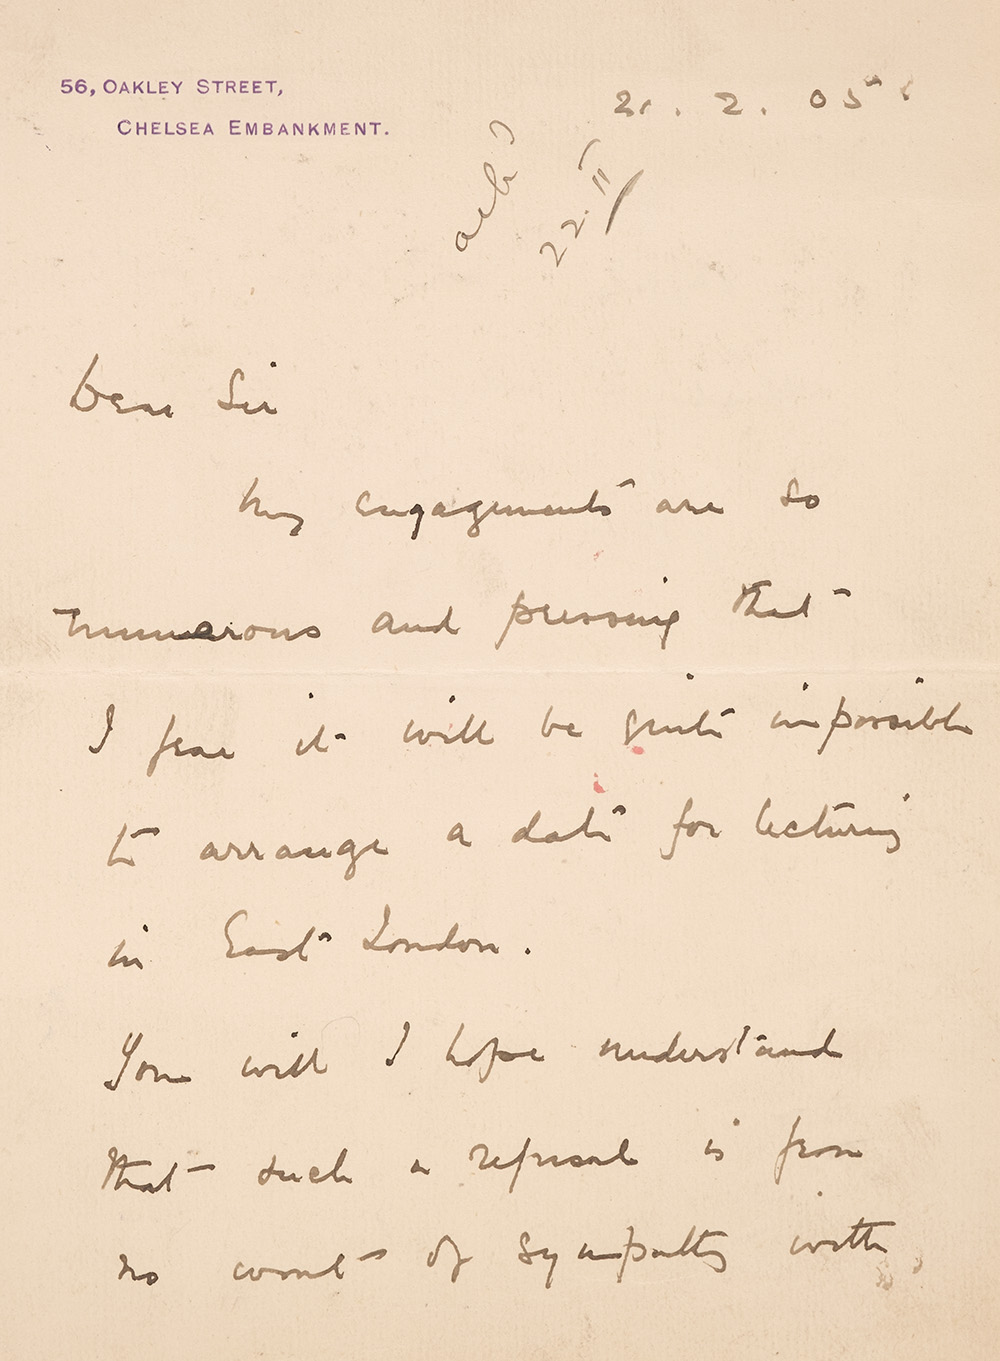 56, OAKLEY STREET,
CHELSEA EMBANKMENT.
21. 2. 05
22. II
Dear Sir
My engagements are so
numerous and pressing that
I fear it will be quite impossible
to arrange a date for lecturing
in East London.
You will I hope understand
that such a refusal is from
no want of sympathy with